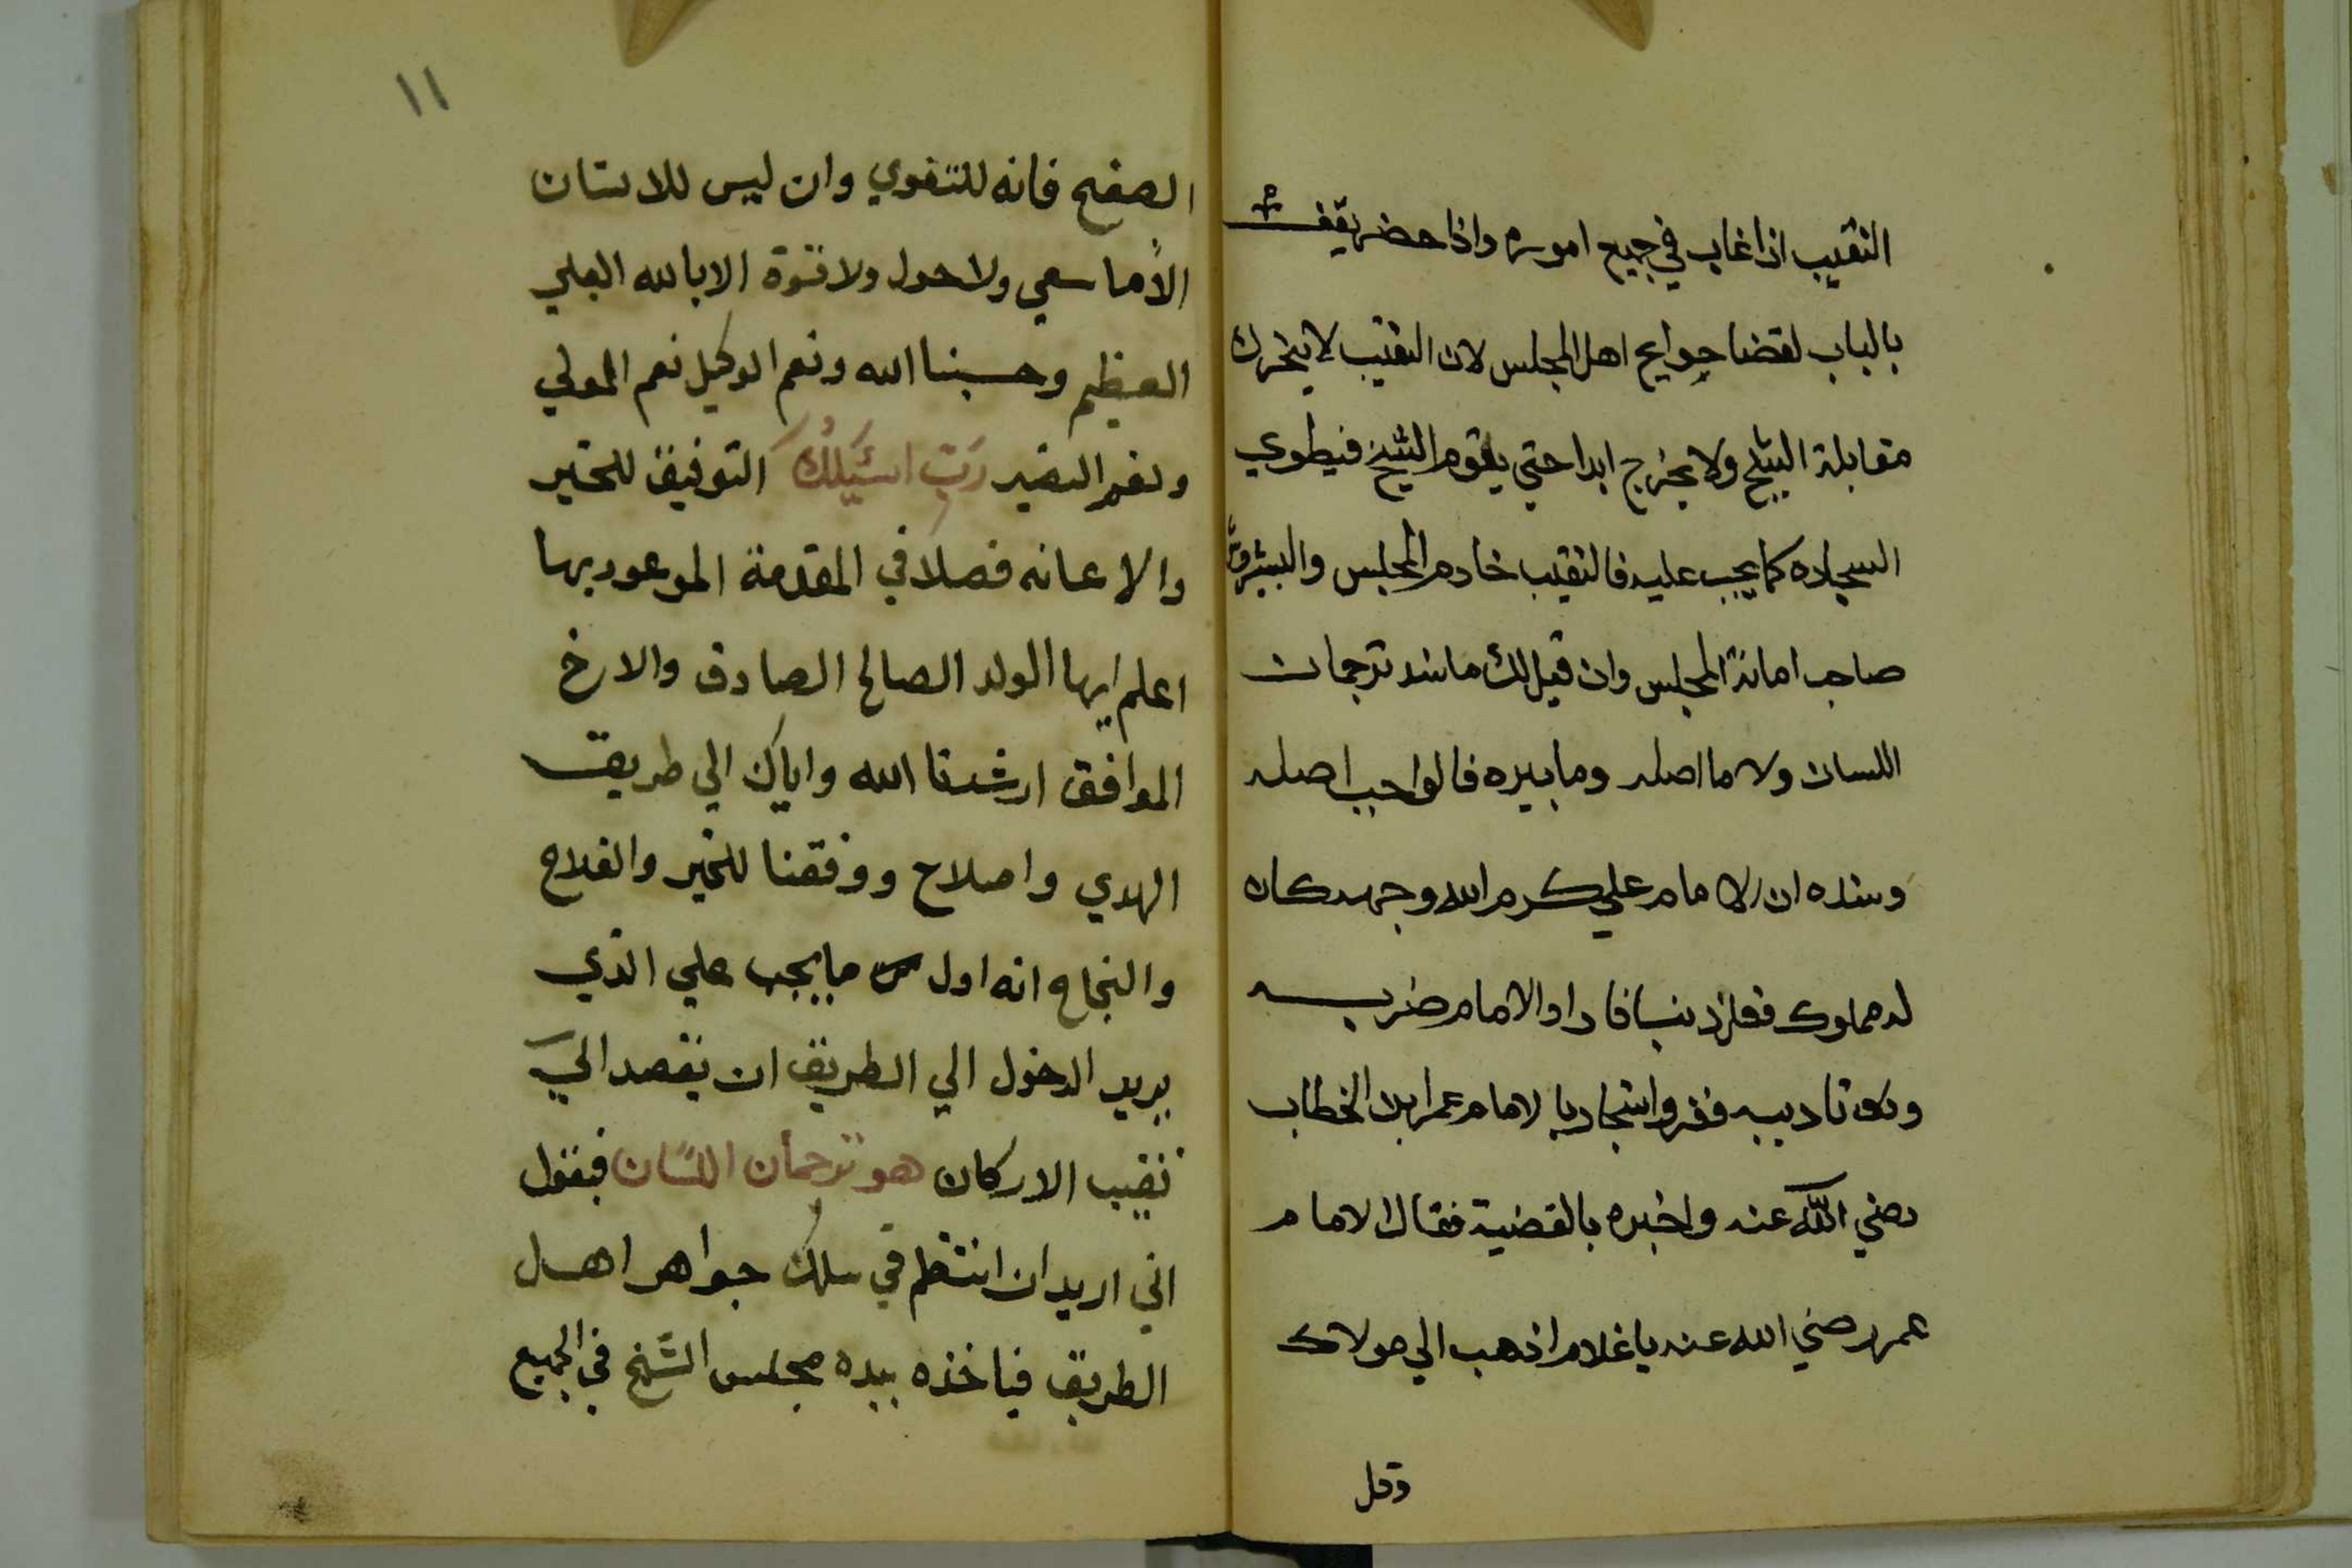 النقيب اذا غاب في جميع اموره واذا حضر يقف
بالباب لقضا حوايج اهل المجلس لان النقيب لا يتحرك
مقابلة الشيخ ولا يخرج ابدا حتي يقوم الشيخ فيطوي
السجاده كما يجب عليه فالنقيب خادم المجلس والبيشروش
صاحب امانة المجلس وان قيل لك ما سند ترجمان
اللسان ولا ما اصله وما بيره فالواجب اصله
وسنده ان الامام علي كرم الله وجهه كان
له مملوك ففعل ذنبا فاراد الامام ضربه
وكان تاديبه ففر واستجار بالامام عمر ابن الخطاب
رضي الله عنه واخبره بالقضية فقال الامام
عمر رضي الله عنه يا غلام اذهب الي مولاك
وقل
١١
الصفح فانه للتقوي وان ليس للانسان
الا ما سعي ولا حول ولا قوة الا بالله العلي
العظيم وحسبنا الله ونعم الوكيل نعم المولي
ونعم النصير رب اسئلك التوفيق للخير
والاعانه فصلا في المقدمة الموعود بها
اعلم ايها الولد الصالح الصادق والاخ
الموافق ارشدنا الله واياك الي طريق
الهدي واصلاح ووفقنا للخير والفلاح
والنجاح انه اول ما يجب علي الذي
يريد الدخول الي الطريق ان يقصد الي
نقيب الاركان هو ترجمان اللسان فيقول
اني اريد ان انتظم في سلك جواهر اهل
الطريق فياخذه بيده مجلس الشيخ في الجميع